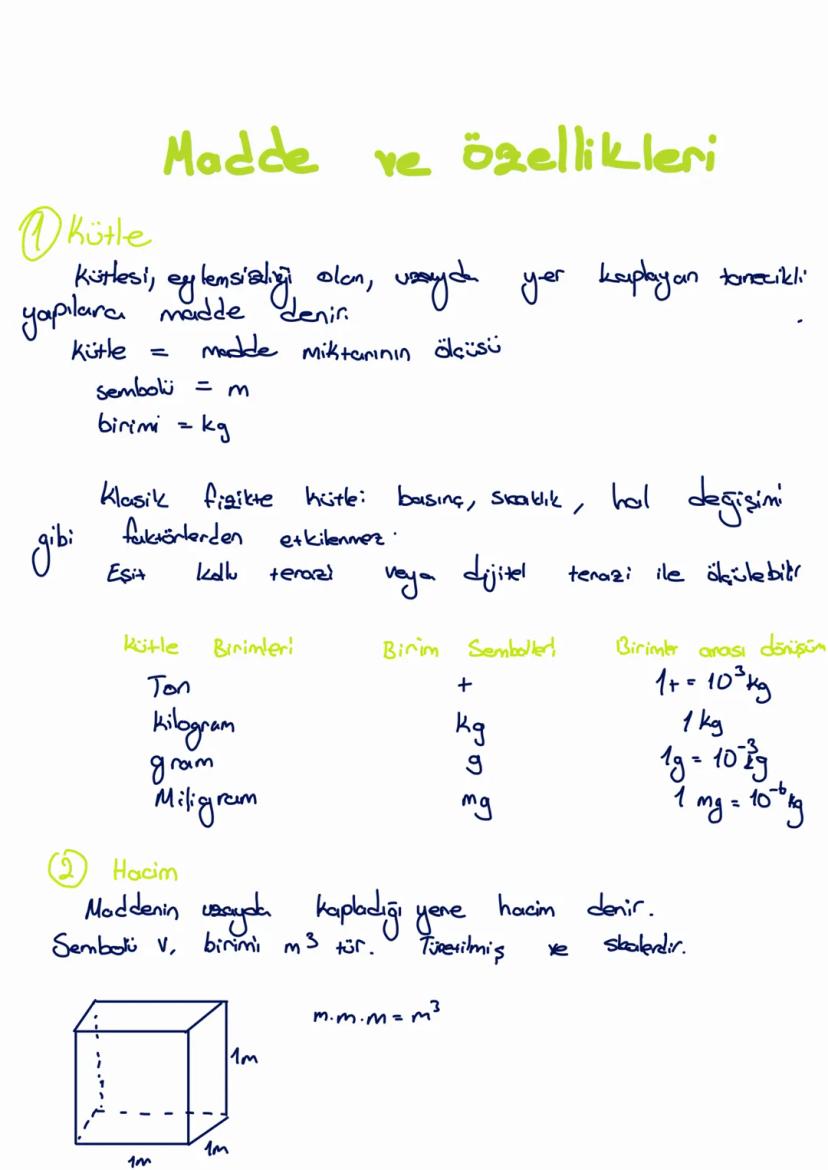 Madde ve özellikleri
1 Kütle
Kütlesi, eylemsizliği olan, uzayda yer kaplayan tanecikli
yapılara madde denir.
Kütle = madde miktarının ölçüsü
sembolü = m
birimi = kg
Klasik fizikte kütle: basınç, sıcaklık, hal değişimi
gibi faktörlerden etkilenmez.
Eşit kollu terazi veya dijitel terazi ile ölçülebilir
Kütle Birimleri Birim Sembolleri Birimler arası dönüşüm
Ton t 1t = 10³ kg
Kilogram kg 1 kg
gram g 1g = 10⁻³ kg
Miligram mg 1 mg = 10⁻⁶ kg
2 Hacim
Maddenin uzayda kapladığı yere hacim denir.
Sembolü V, birimi m³ tür. Türetilmiş ve skalerdir.
m.m.m = m³
1m
1m
1m